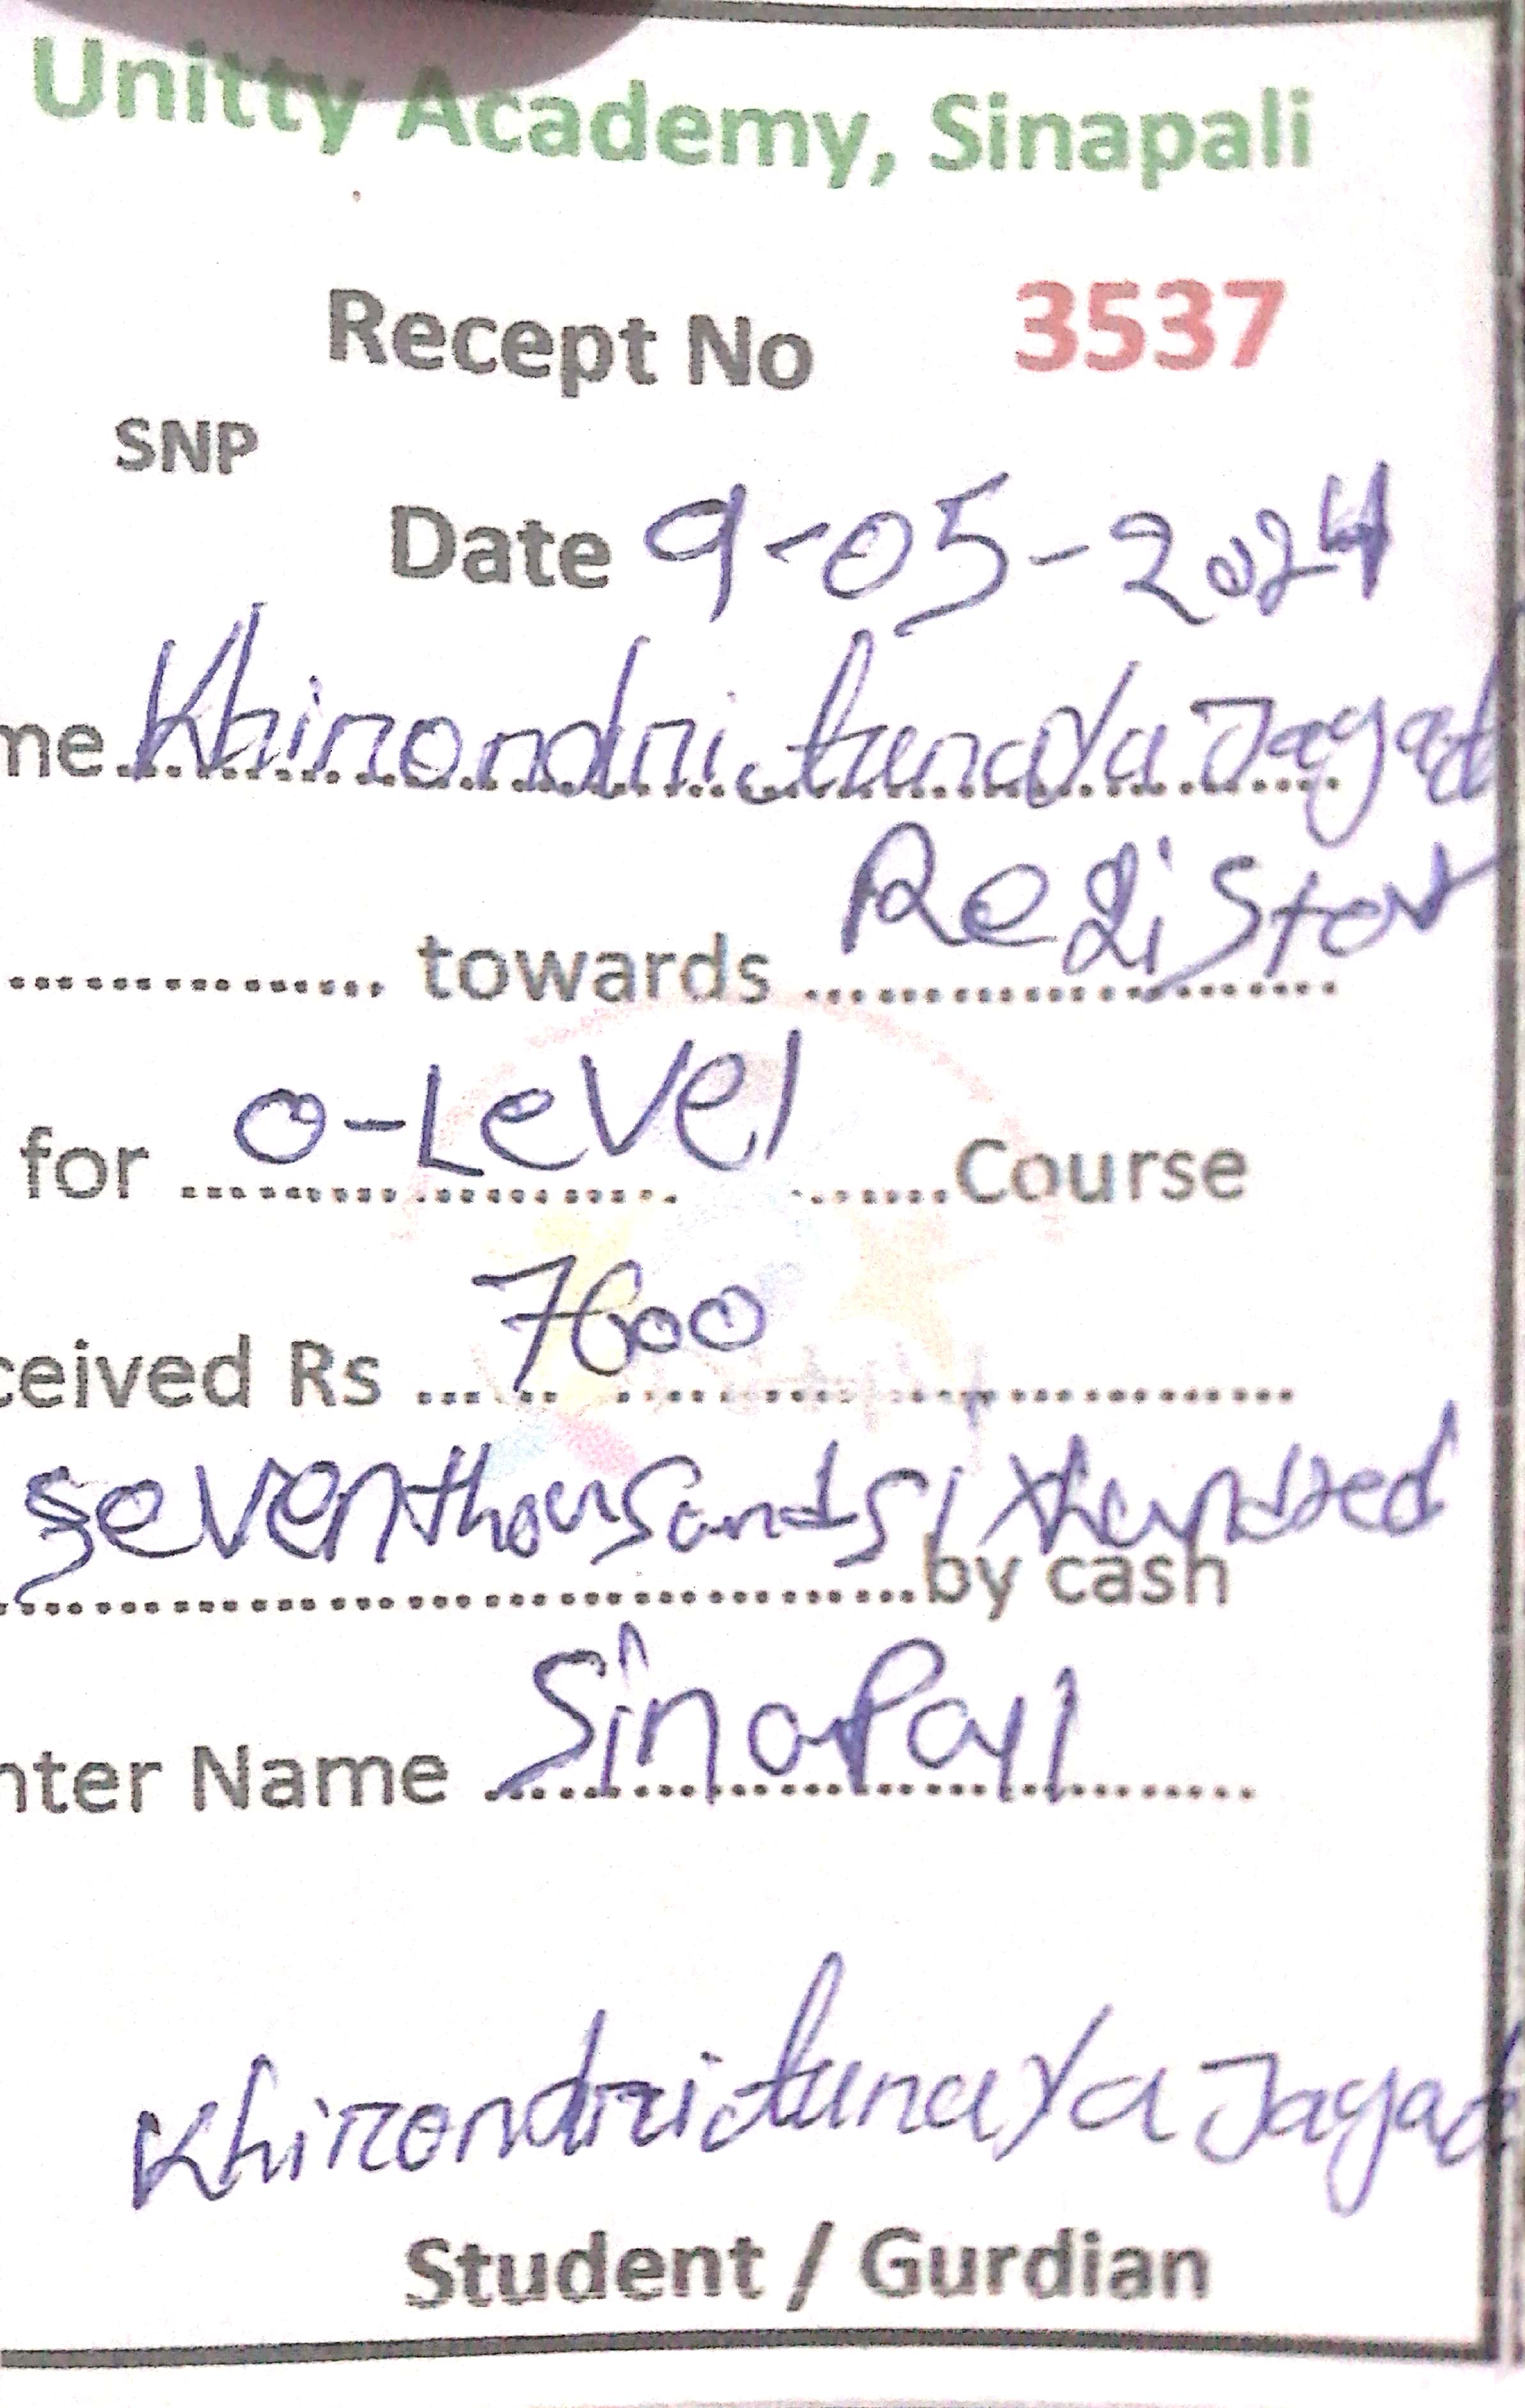 Unitty Academy, Sinapali
Recept No 3537
SNP
Date 9-05-2024
me Khirondri tunaya Jagat
.................. towards Register
for O-Level Course
ceived Rs 7600
seventhousandsixhundred
by cash
nter Name Sinapali
Khirondri tunaya Jagat
Student / Gurdian